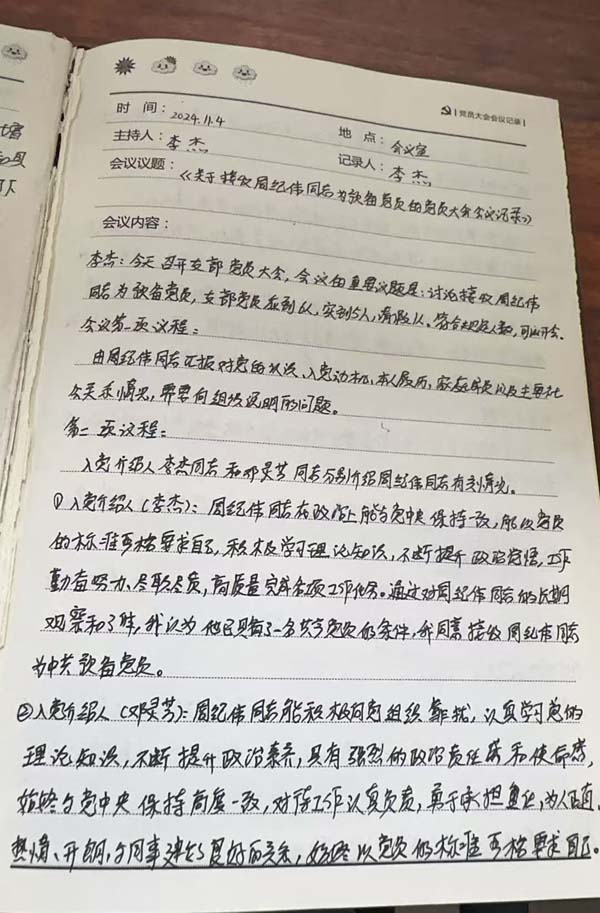 党员大会会议记录
时 间： 2024.11.4 地 点： 会议室
主持人： 李杰 记录人： 李杰
会议议题： 《关于接收周纪伟同志为预备党员的党员大会会议记录》
会议内容：
李杰：今天召开支部党员大会，会议的重要议题是：讨论接收周纪伟
同志为预备党员，支部党员应到6人，实到5人，请假1人。符合规定人数，可以开会。
会议第一项议程：
由周纪伟同志汇报对党的认识、入党动机、本人履历、家庭成员以及主要社
会关系情况，需要向组织说明的问题。
第二项议程：
入党介绍人李杰同志和邓昊芳同志分别介绍周纪伟同志有关情况。
①入党介绍人（李杰）：周纪伟同志在政治上能与党中央保持一致，能以党员
的标准严格要求自己，积极学习理论知识，不断提升政治觉悟，工作
勤奋努力、尽职尽责，高质量完成各项工作任务。通过对周纪伟同志的长期
观察和了解，我认为他已具备了一名共产党员的条件，我同意接收周纪伟同志
为中共预备党员。
②入党介绍人（邓昊芳）：周纪伟同志能积极向党组织靠拢，认真学习党的
理论知识，不断提升政治素养，具有强烈的政治责任感和使命感，
始终与党中央保持高度一致，对待工作认真负责，勇于承担重任，为人正直、
热情、开朗，与同事建立了良好的关系，始终以党员的标准严格要求自己。